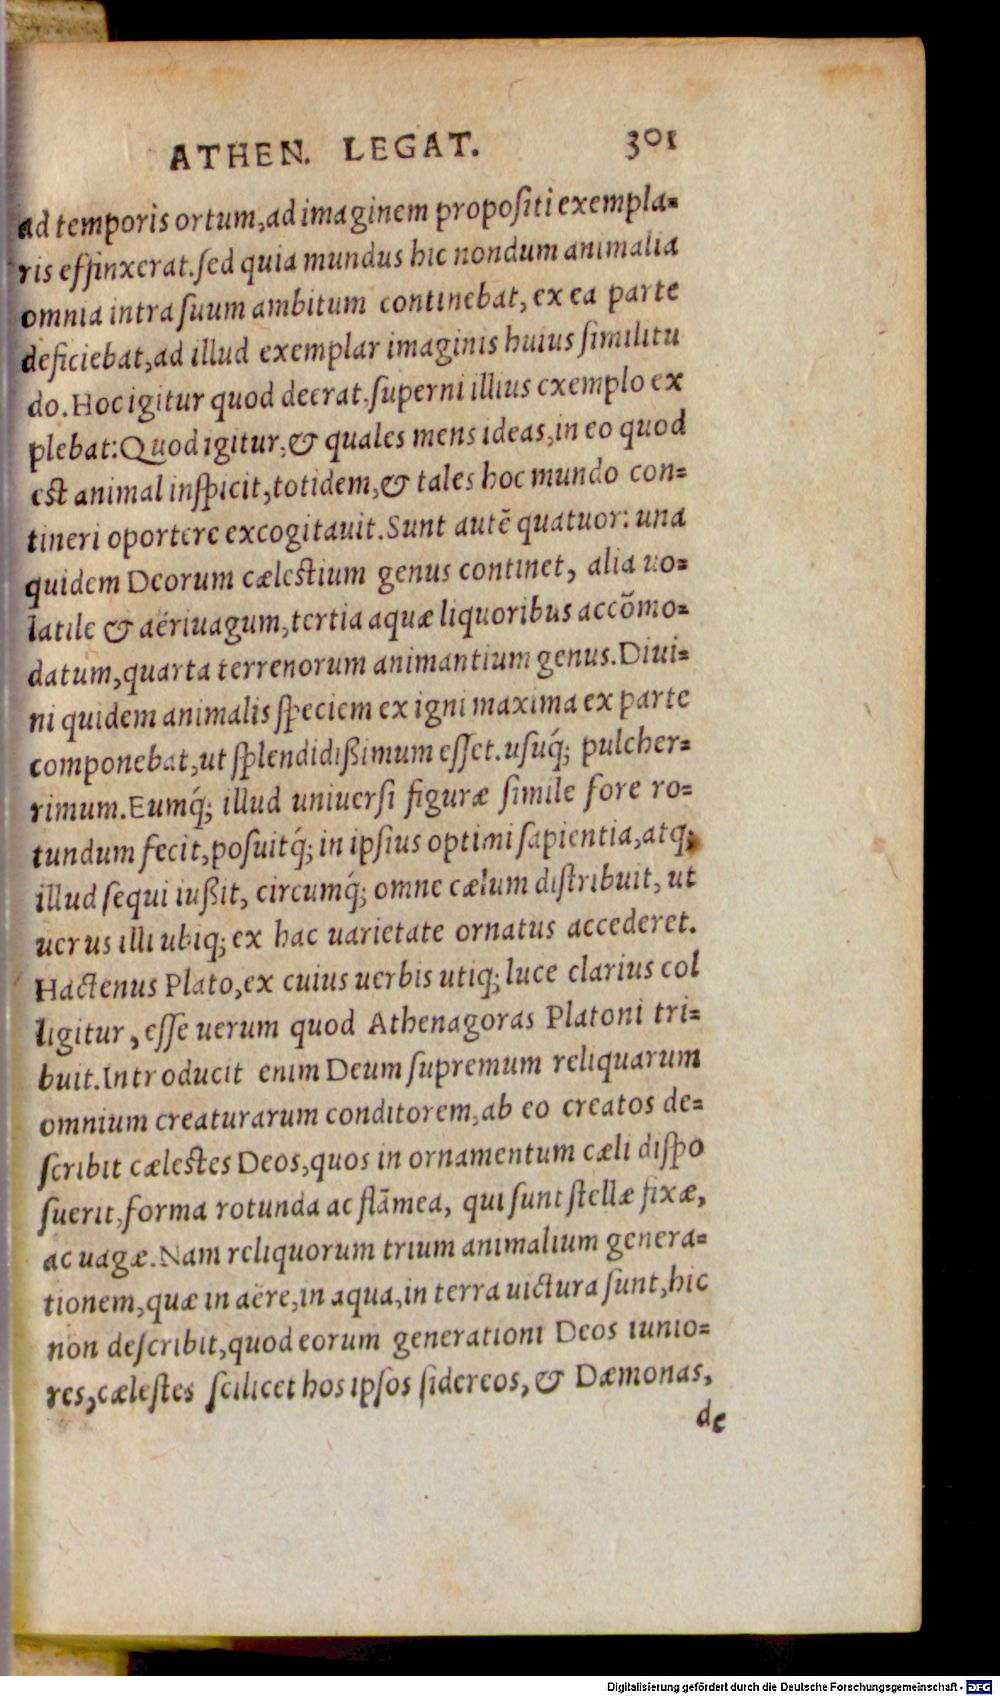 ATHEN. LEGAT. 301
ad temporis ortum, ad imaginem propoſiti exempla=
ris effinxerat. ſed quia mundus hic nondum animalia
omnia intra ſuum ambitum continebat, ex ea parte
deficiebat, ad illud exemplar imaginis huius ſimilitu
do. Hoc igitur quod deerat, ſuperni illius exemplo ex
plebat: Quod igitur, & quales mens ideas, in eo quod
est animal inſpicit, totidem, & tales hoc mundo con=
tineri oportere excogitauit. Sunt autẽ quatuor: una
quidem Deorum cælestium genus continet, alia uo=
latile & aëriuagum, tertia aquæ liquoribus accõmo=
datum, quarta terrenorum animantium genus. Diui=
ni quidem animalis ſpeciem ex igni maxima ex parte
componebat, ut ſplendidißimum eſſet. uſuq́; pulcher=
rimum. Eumq́; illud uniuerſi figuræ ſimile fore ro=
tundum fecit, poſuitq́; in ipſius optimi ſapientia, atq;
illud ſequi iußit, circumq́; omne cælum diſtribuit, ut
uerus illi ubiq; ex hac uarietate ornatus accederet.
Hactenus Plato, ex cuius uerbis utiq; luce clarius col
ligitur, eſſe uerum quod Athenagoras Platoni tri=
buit. Introducit enim Deum ſupremum reliquarum
omnium creaturarum conditorem, ab eo creatos de=
ſcribit cælestes Deos, quos in ornamentum cæli diſpo
ſuerit, forma rotunda ac flãmea, qui ſunt ſtellæ fixæ,
ac uagæ. Nam reliquorum trium animalium genera=
tionem, quæ in aëre, in aqua, in terra uictura ſunt, hic
non deſcribit, quod eorum generationi Deos iunio=
res, cæleſtes ſcilicet hos ipſos ſidereos, & Dæmonas,
de
Digitalisierung gefördert durch die Deutsche Forschungsgemeinschaft - DFG